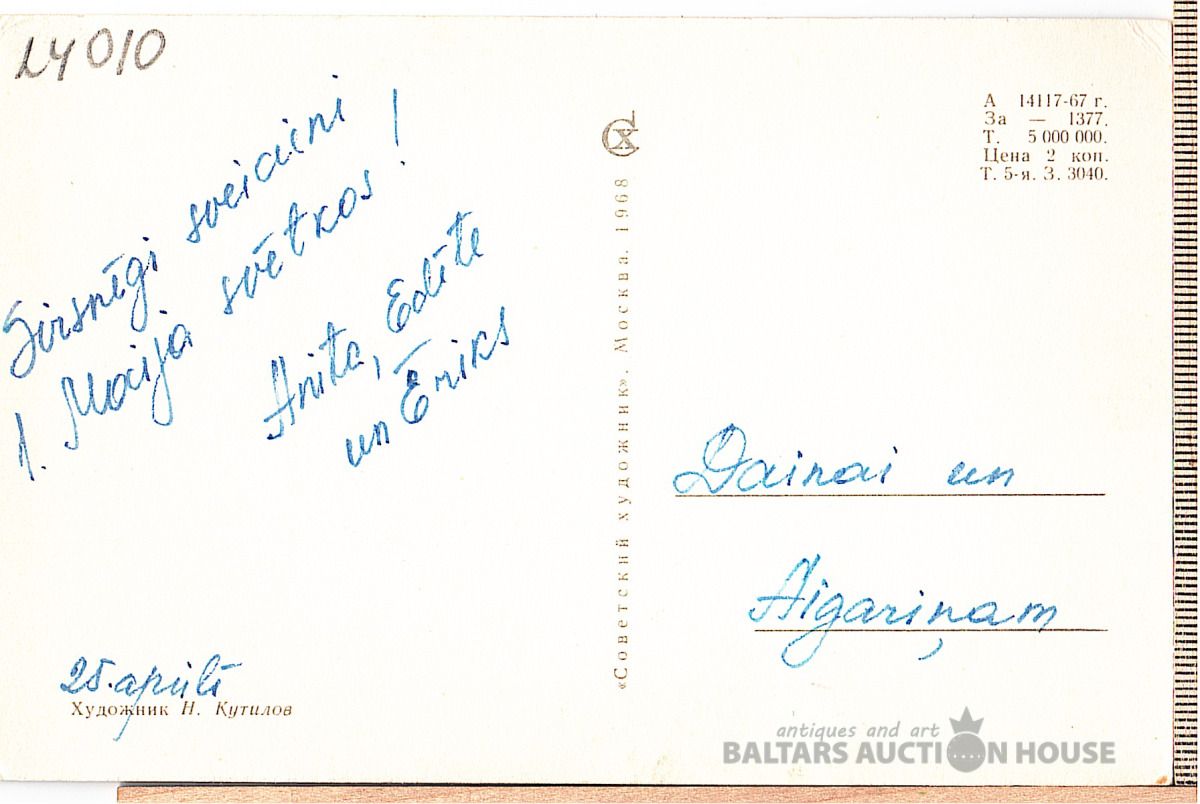 L4010
Sirsnīgi sveicieni
1. Maija svētkos!
Anita, Edīte
un Ēriks
25. aprīlī
Художник Н. Кутилов
«Советский художник». Москва. 1968
А 14117-67 г.
За — 1377.
Т. 5 000 000.
Цена 2 коп.
Т. 5-я. З. 3040.
Dainai un
Aigariņam
antiques and art
BALTARS AUCTION HOUSE